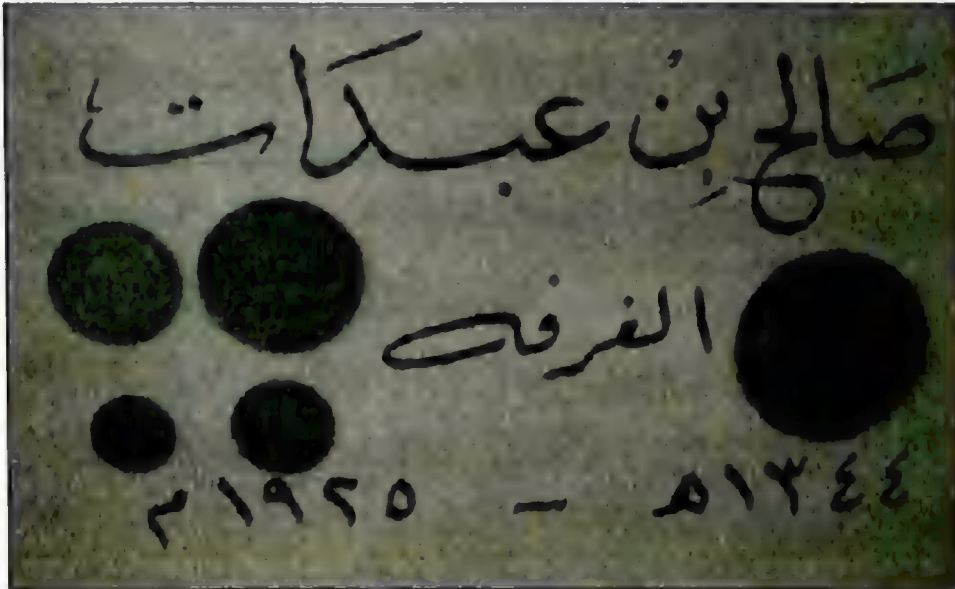 صالح بن عبدات
الغرفه
١٣٤٤هـ - ١٩٢٥م